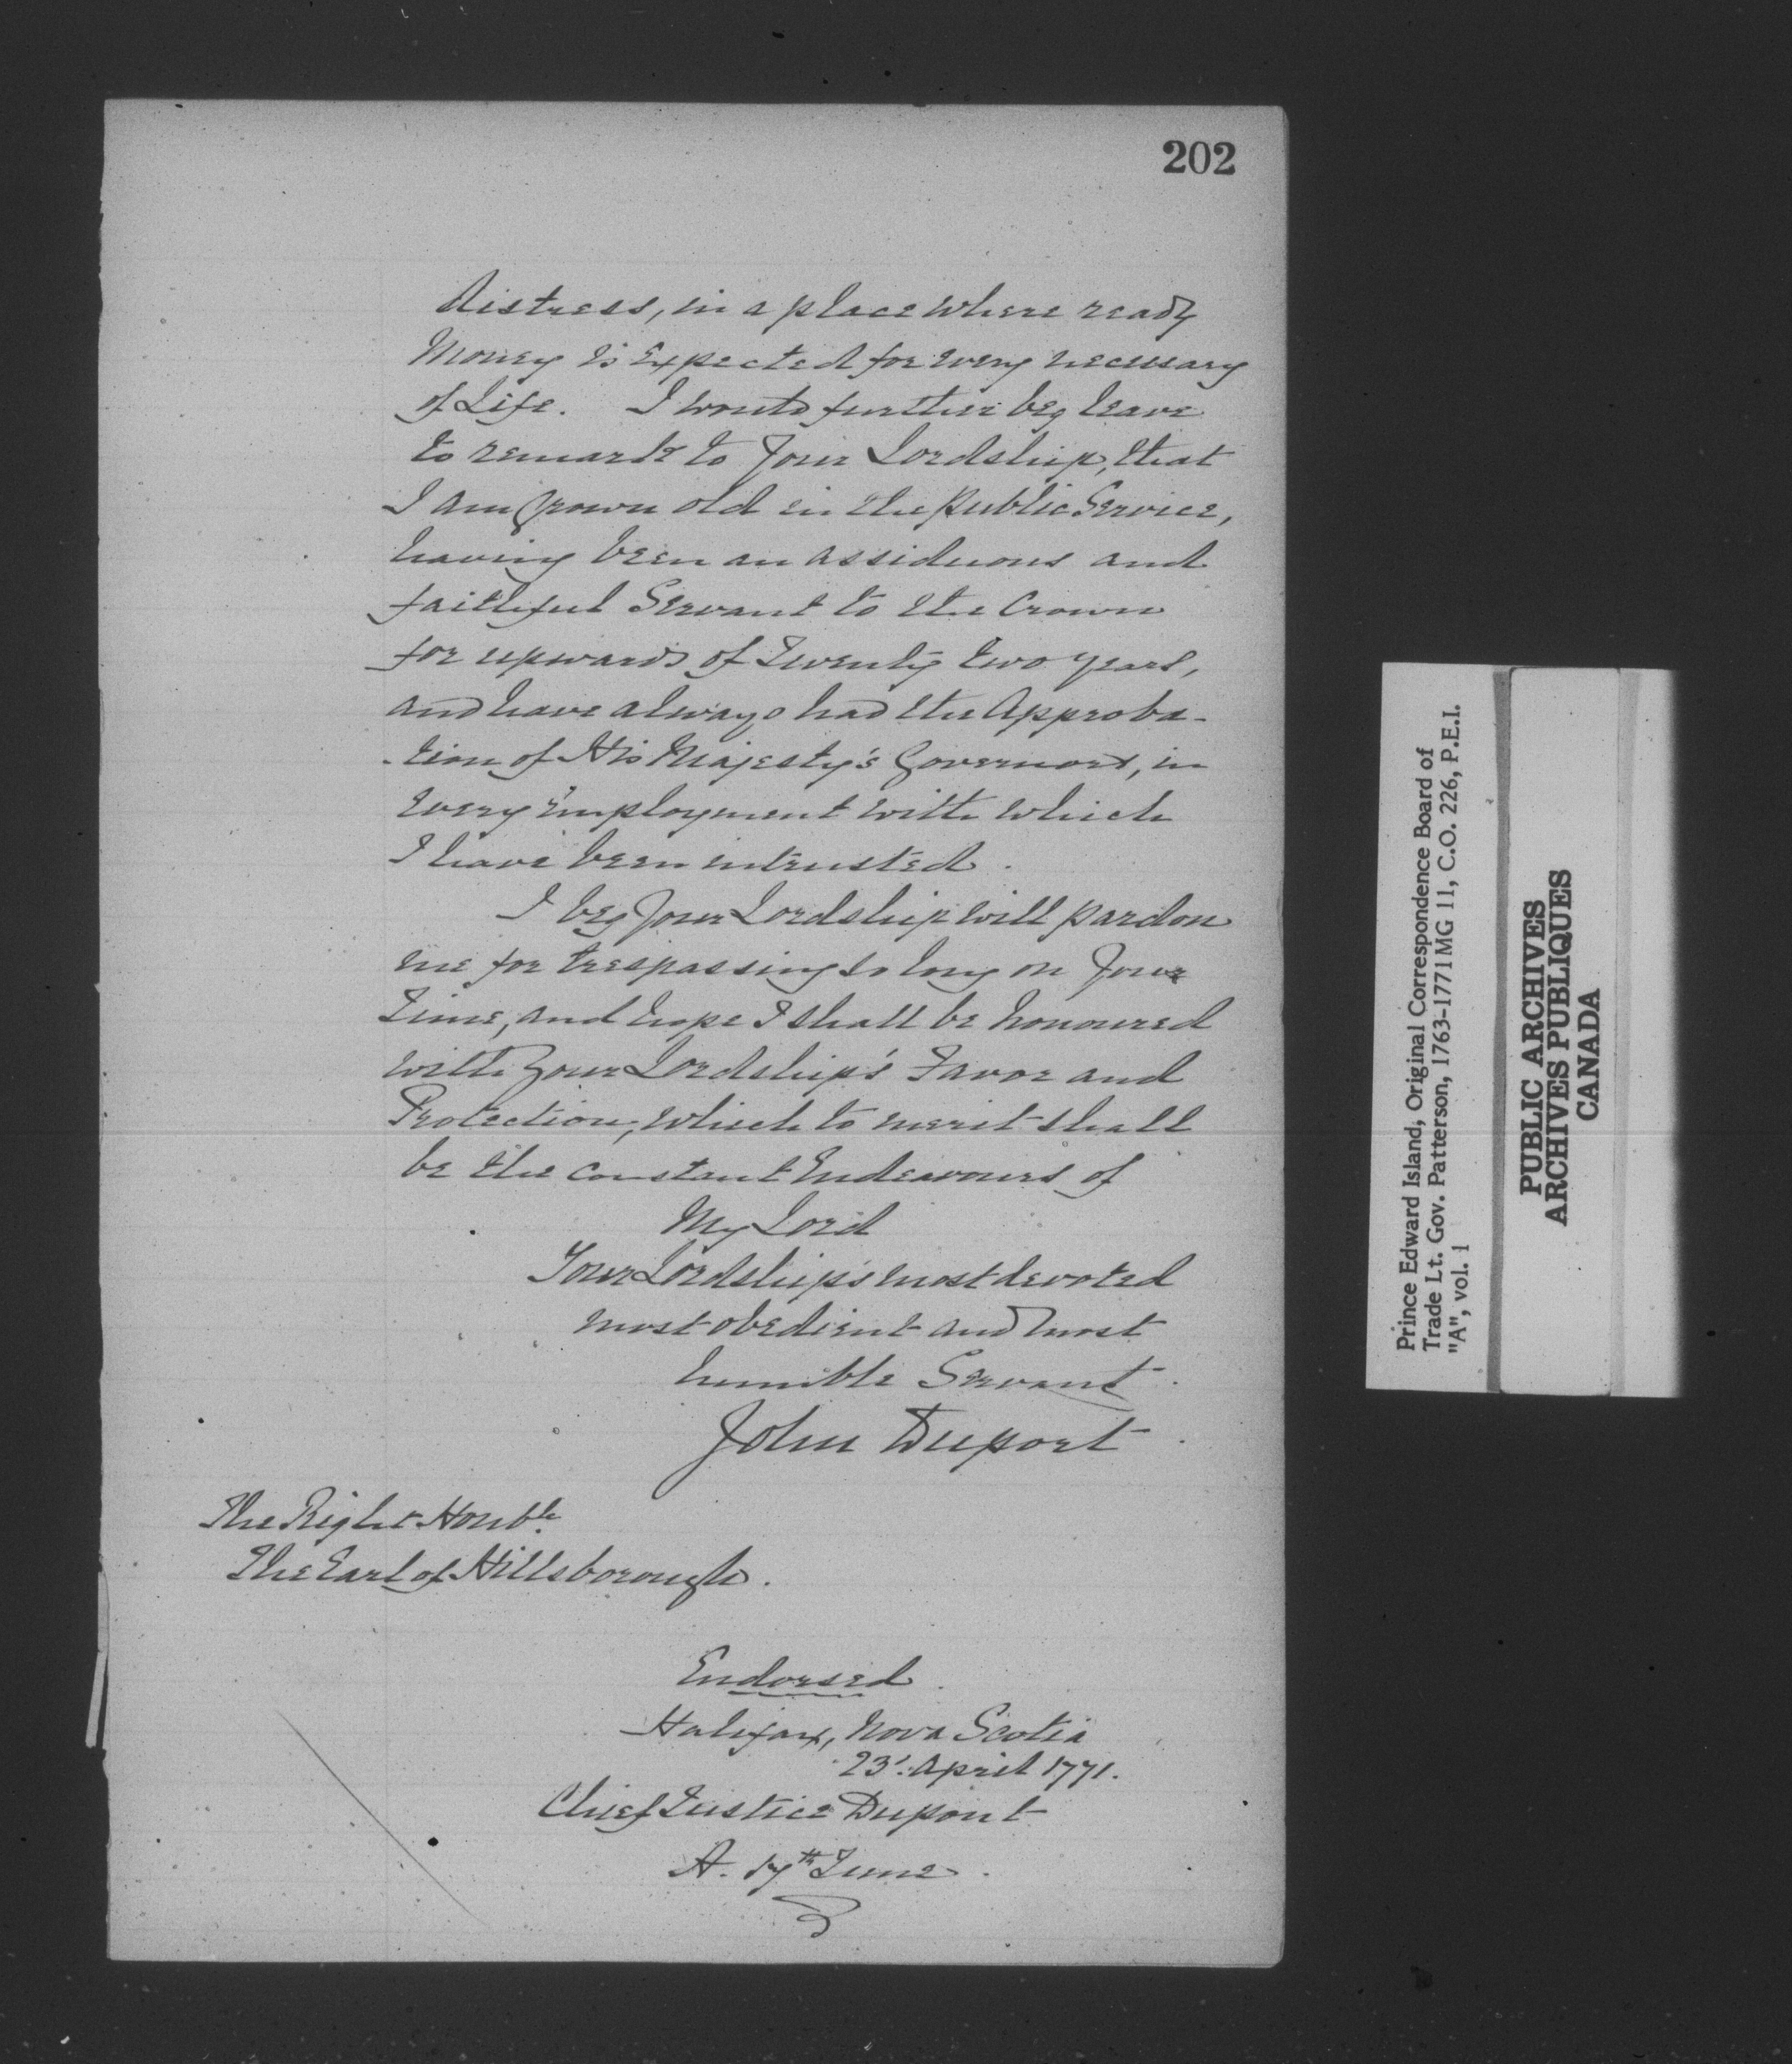 202
distress, in a place where ready
Money is Expected for every necessary
of Life. I would further beg leave
to remark to Your Lordship, that
I am grown old in the public Service,
having been an assiduous and
faithful Servant to the Crown
for upwards of Twenty two years,
and have always had the Approba-
-tion of His Majesty's Governors, in
every Employment with which
I have been intrusted.
I beg Your Lordship will pardon
me for trespassing so long on Your
Time, and hope I shall be honoured
with Your Lordship's Favor and
Protection, which to merit shall
be the constant Endeavours of
My Lord
Your Lordship's most devoted
most obedient and most
humble Servant.
John Duport.
The Right Honble.
The Earl of Hillsborough.
Endorsed.
Halifax, Nova Scotia
23'. April 1771.
Chief Justice Duport
A. 17th June.
Prince Edward Island, Original Correspondence Board of
Trade Lt. Gov. Patterson, 1763-1771MG 11, C.O. 226, P.E.I.
"A", vol. 1
PUBLIC ARCHIVES
ARCHIVES PUBLIQUES
CANADA